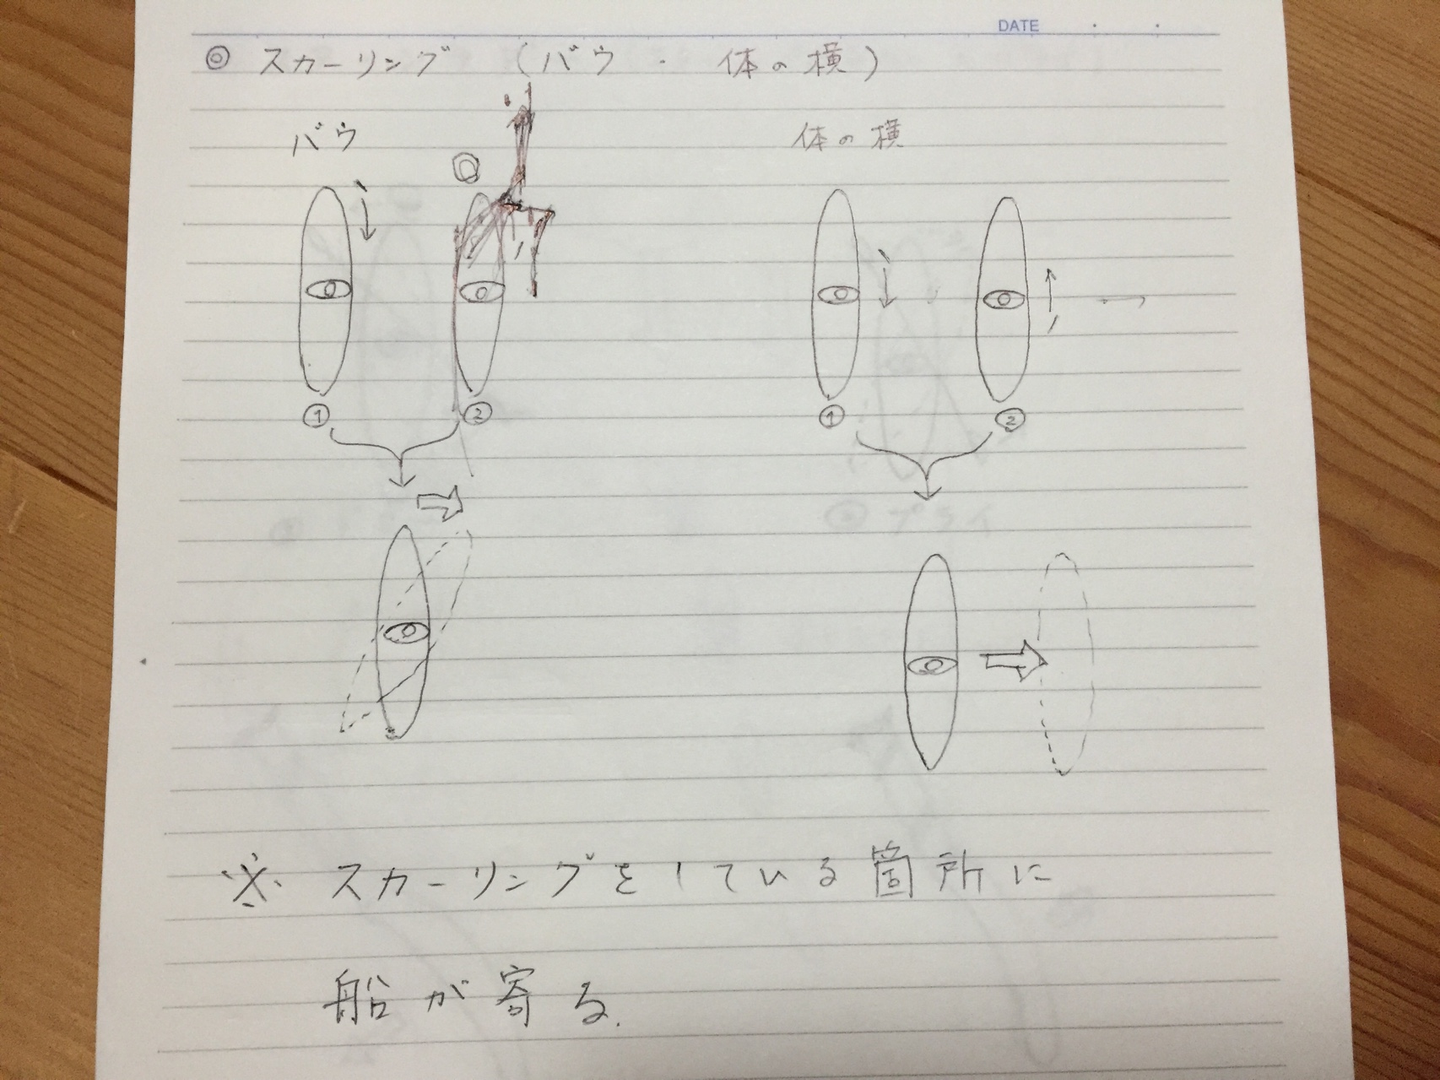 DATE
◎ スカーリング (バウ ・ 体の横)
バウ
体の横
① ②
① ②
※ スカーリングをしている箇所に
船が寄る.